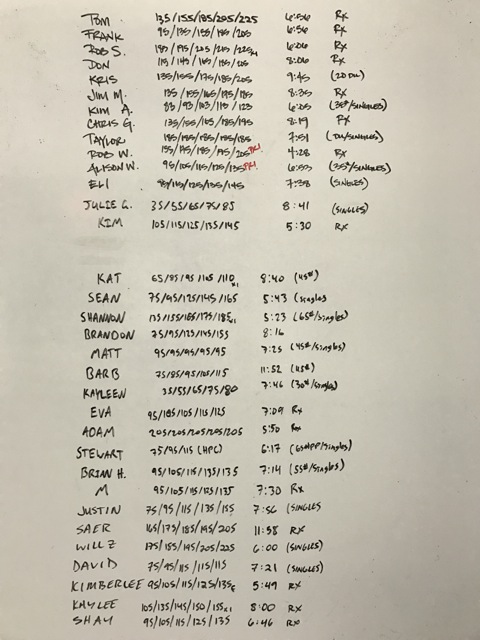 TOM 135/155/185/205/225 6:56 Rx
FRANK 95/135/155/185/205 6:56 Rx
ROB S. 6:06 Rx
DON 115/145/165/185/205 8:06 Rx
KRIS 135/155/175/185/205 9:45
JIM M. 135/155/165/175/185 8:35 Rx
KIM A. 83/93/103/113/123 6:05 (35#/SINGLES)
CHRIS G. 135/155/165/185/195 8:19 Rx
TAYLOR 185/185/185/185/185 7:51 (DU/SINGLES)
ROB W. 155/175/185/195/205 PR! 4:28 Rx
ALISON W. 95/105/115/125/135 PR! 6:53 (35#/SINGLES)
ELI 85/115/125/135/145 7:38 (SINGLES)
JULIE G. 35/55/65/75/85 8:41 (SINGLES)
KIM 105/115/125/135/145 5:30 Rx
KAT 65/85/95/105/110 x1 8:40 (45#)
SEAN 75/95/125/145/165 5:43 (Singles
SHANNON 135/155/185/175/185 x1 5:23 (65#/Singles)
BRANDON 75/95/125/145/155 8:16
MATT 95/95/95/95/95 7:25 (45#/Singles)
BARB 75/85/95/105/115 11:52 (45#)
KAYLEEN 35/55/65/75/80 7:46 (30#/Singles)
EVA 95/105/105/115/125 7:09 Rx
ADAM 205/205/205/205/205 5:50 Rx
STEWART 75/95/115 (HPC) 6:17 (65#PP/Singles)
BRIAN H. 95/105/115/135/135 7:14 (55#/Singles)
M 95/105/115/125/135 7:30 Rx
JUSTIN 75/95/115/135/155 7:56 (SINGLES
SAER 165/175/185/195/205 11:58 Rx
WILL Z 175/185/195/205/225 6:00 (SINGLES)
DAVID 75/95/115/115/115 7:21 (SINGLES)
KIMBERLEE 95/105/115/125/135F 5:49 Rx
KAYLEE 105/135/145/150/155 x1 8:00 Rx
SHAY 95/105/115/125/135 6:46 Rx